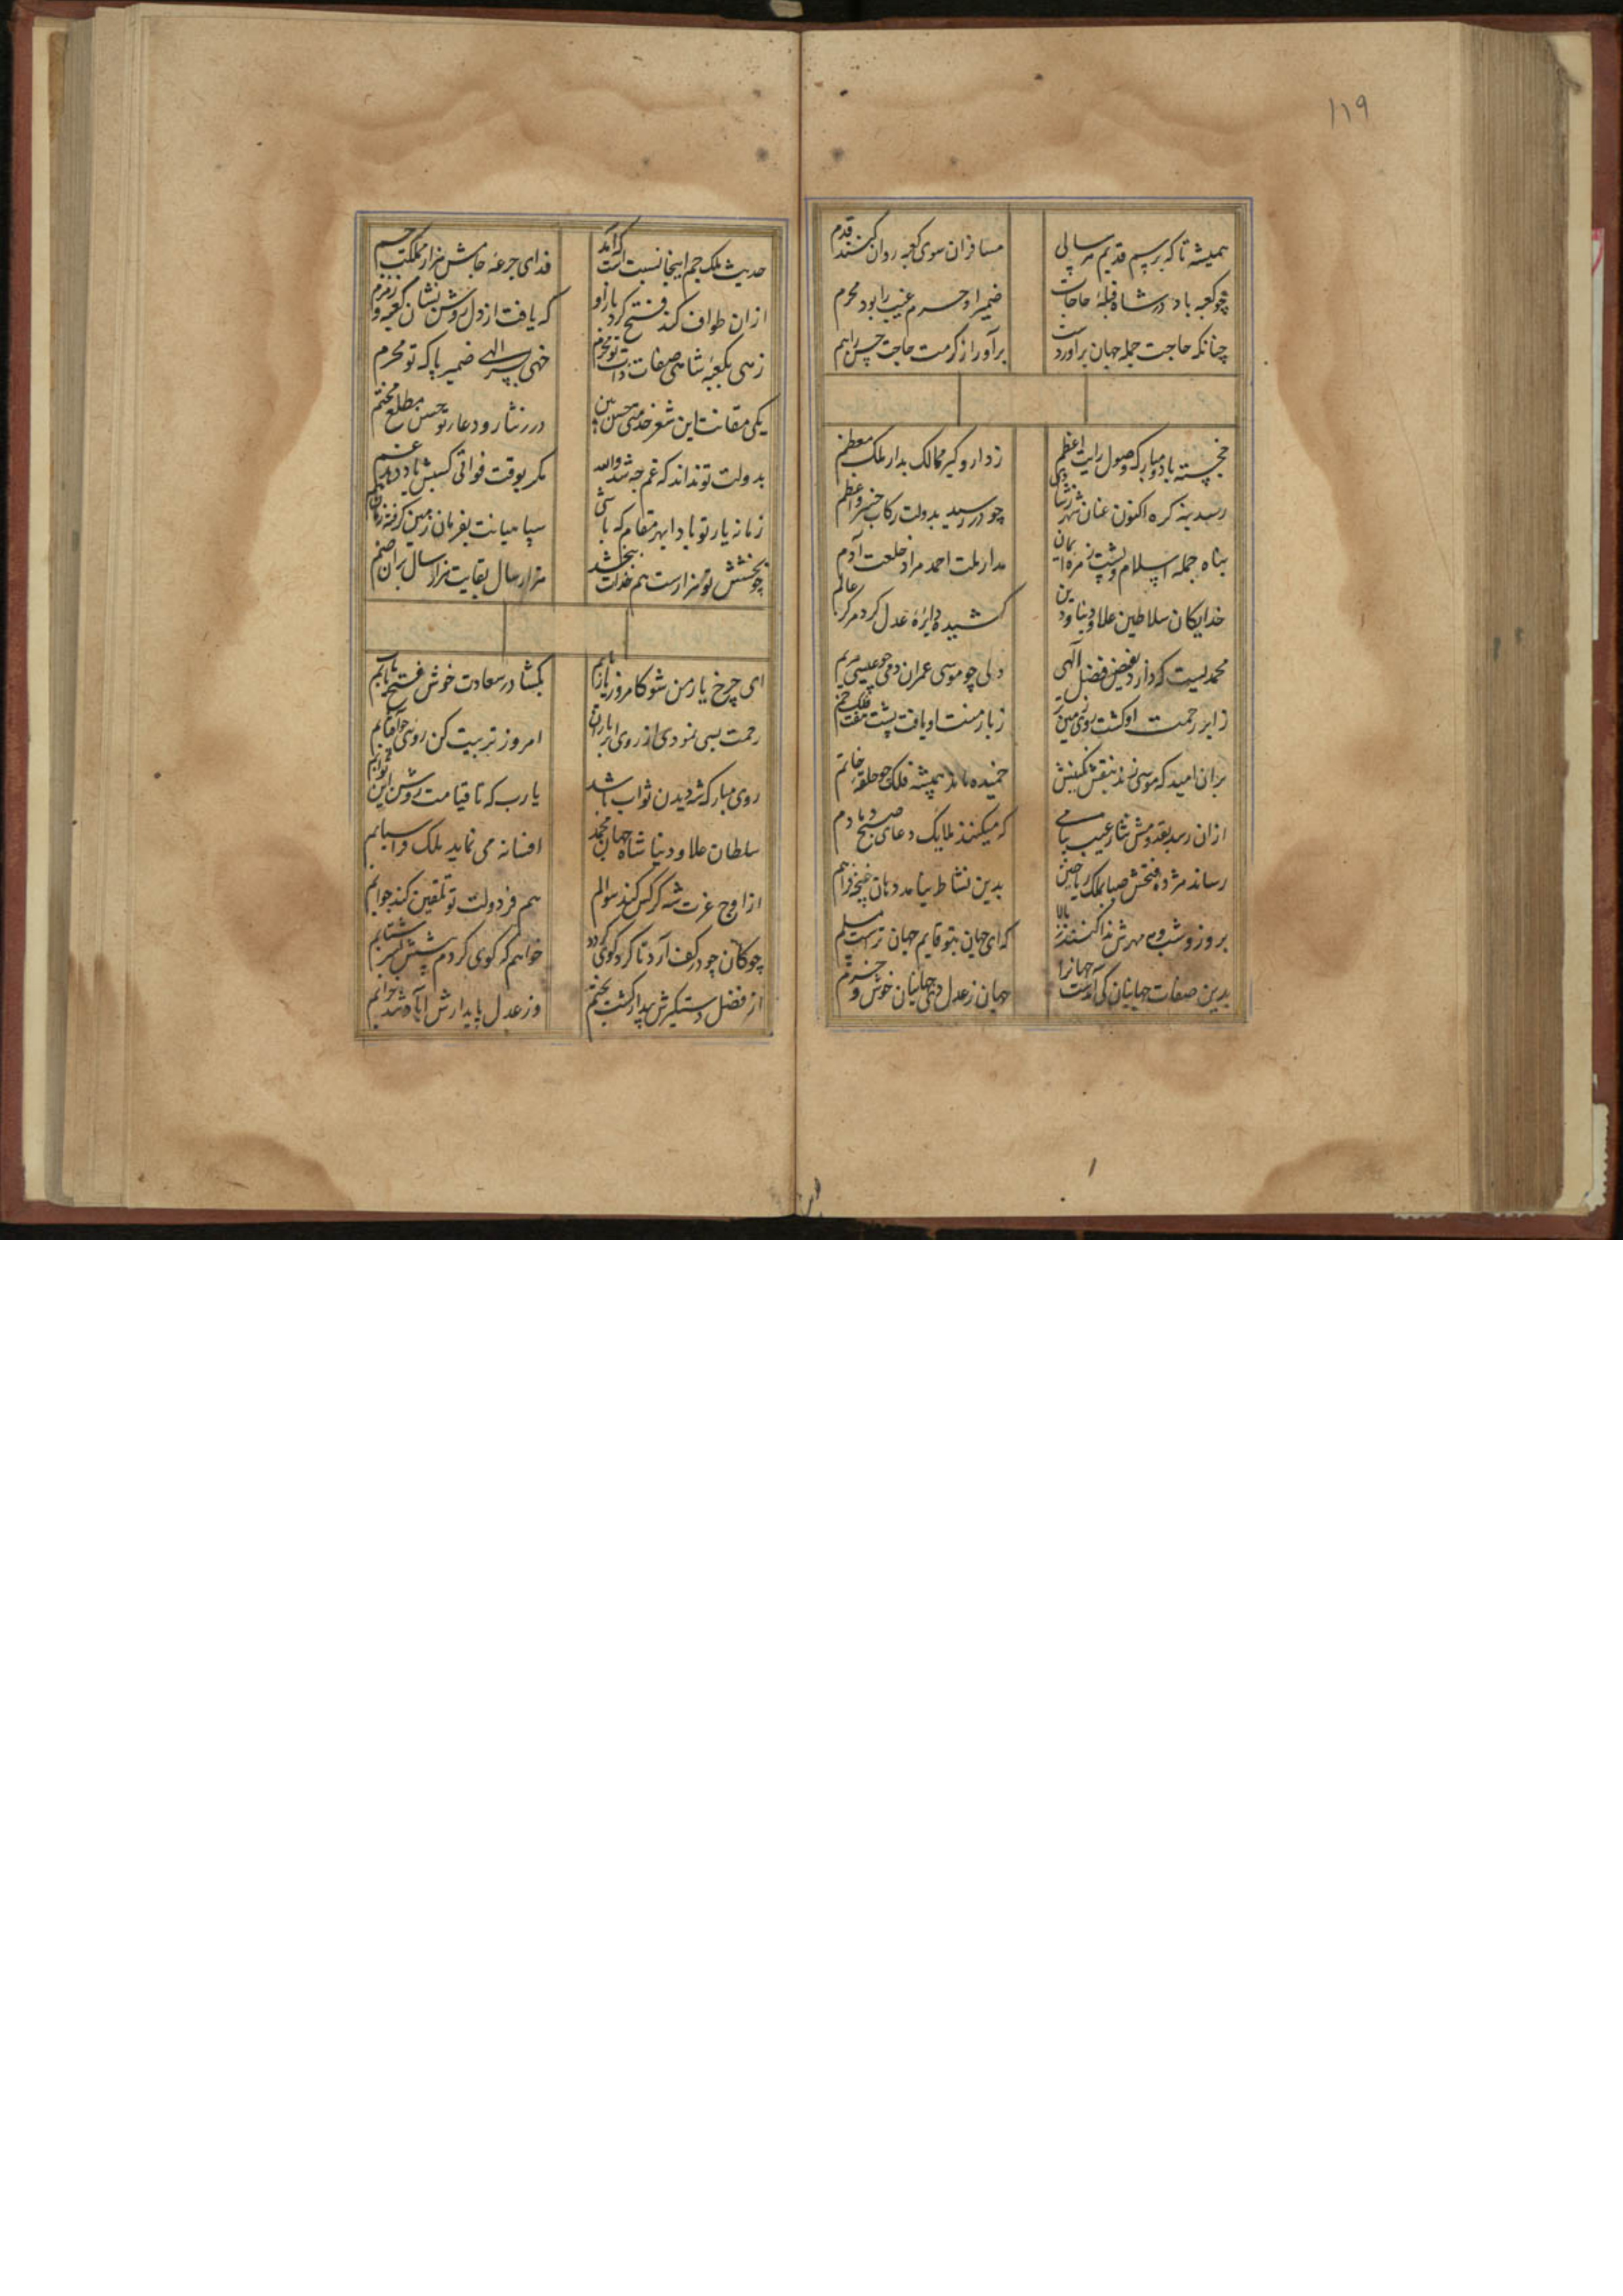 ۱۱۹
همیشه تا که برسم قدیم هر سالی
مسافران سوی کعبه روان کنند قدم
چو کعبه باد در شاه قبلهٔ حاجات
ضمیر او حرم غیب را بود محرم
چنانکه حاجت جمله جهان برآوردست
برآور از کرمت حاجت حسن را هم
خجسته باد و مبارک وصول رایت اعظم
ز دار و گیر ممالک بدار ملک معظم
رسید بنه کره اکنون عنان
چو در رسید بدولت رکاب خسرو اعظم
پناه جمله اسلام و پشت زمره ایمان
مدار ملت احمد مراد خلعت آدم
خدایگان سلاطین علاء دنیا و دین
کشیده دایرهٔ عدل کرد مرکز عالم
محمدیست که دارد بفیض فضل الهی
دلی چو موسی عمران دمی چو عیسی مریم
ز ابر رحمت او گشت روی زمین تر
ز بار منت او یافت پشت هفت فلک خم
بران امید که موسی نهد بنقش نگینش
خمیده ماند همیشه فلک چو حلقه خاتم
ازان رسد بقدومش نثار غیب پیامی
که میکنند ملایک دعای صبح دمادم
رساند مژده فتحش صبا بملک ریاحین
بدین نشاط نیامد دهان غنچه فراهم
بروز و شب مه و مهرش ندا کنند ز بالا
که ای جهان بتو قایم جهان تراست مسلم
بدین صفات جهانبان که آمدست جهانرا
جهان ز عدل وی جهانیان خوش و خرم
حدیث ملک جم اینجا نسبت است که آمد
فدای جرعه جامش هزار مملکت جم
ازان طواف کند فتح کرد بازو او
که یافت از دل روشن نشان کعبه و زمزم
زهی بکعبهٔ شاهی صفات ذات تو محرم
خهی بسر الهی ضمیر پاک تو محرم
یکی مقانت این شعر خدمتی حسن بین
درر نثار و دعا در تو حسن مطلع مختم
بدولت تو نداند که غم چه شد والله
مگر بوقت فواتی کسیش یاد دهد غم
زمانه یار تو باد ابهر مقام که باشی
سپاهیانت بفرمان زمین گرفته زمان هم
چو بخشش تو هزارست هم خدات ببخشد
هزار سال بقایت هزار سال بران ضم
ای چرخ یار من شو کامروز یار یابم
بگشا در سعادت خوش فتح یابم
رحمت بسی نمودی از روی ابر باران
امروز تربیت کن روی چو آفتابم
روی مبارک شه دیدن ثواب باشد
یا رب که تا قیامت روشن این ثوابم
سلطان علاء دنیا شاه جهان محمد
افسانه می نماید ملک
از اوج عزت شه گر کس کند سوالم
هم فر دولت تو تلقین کند جوابم
چوگان چو در کف آرد تا گرد گوی گردد
خواهم که گوی گردم پیشش بسر شتابم
از فضل دستگیرش بیدار گشت بختم
وز عدل پایدارش آباد شد خرابم